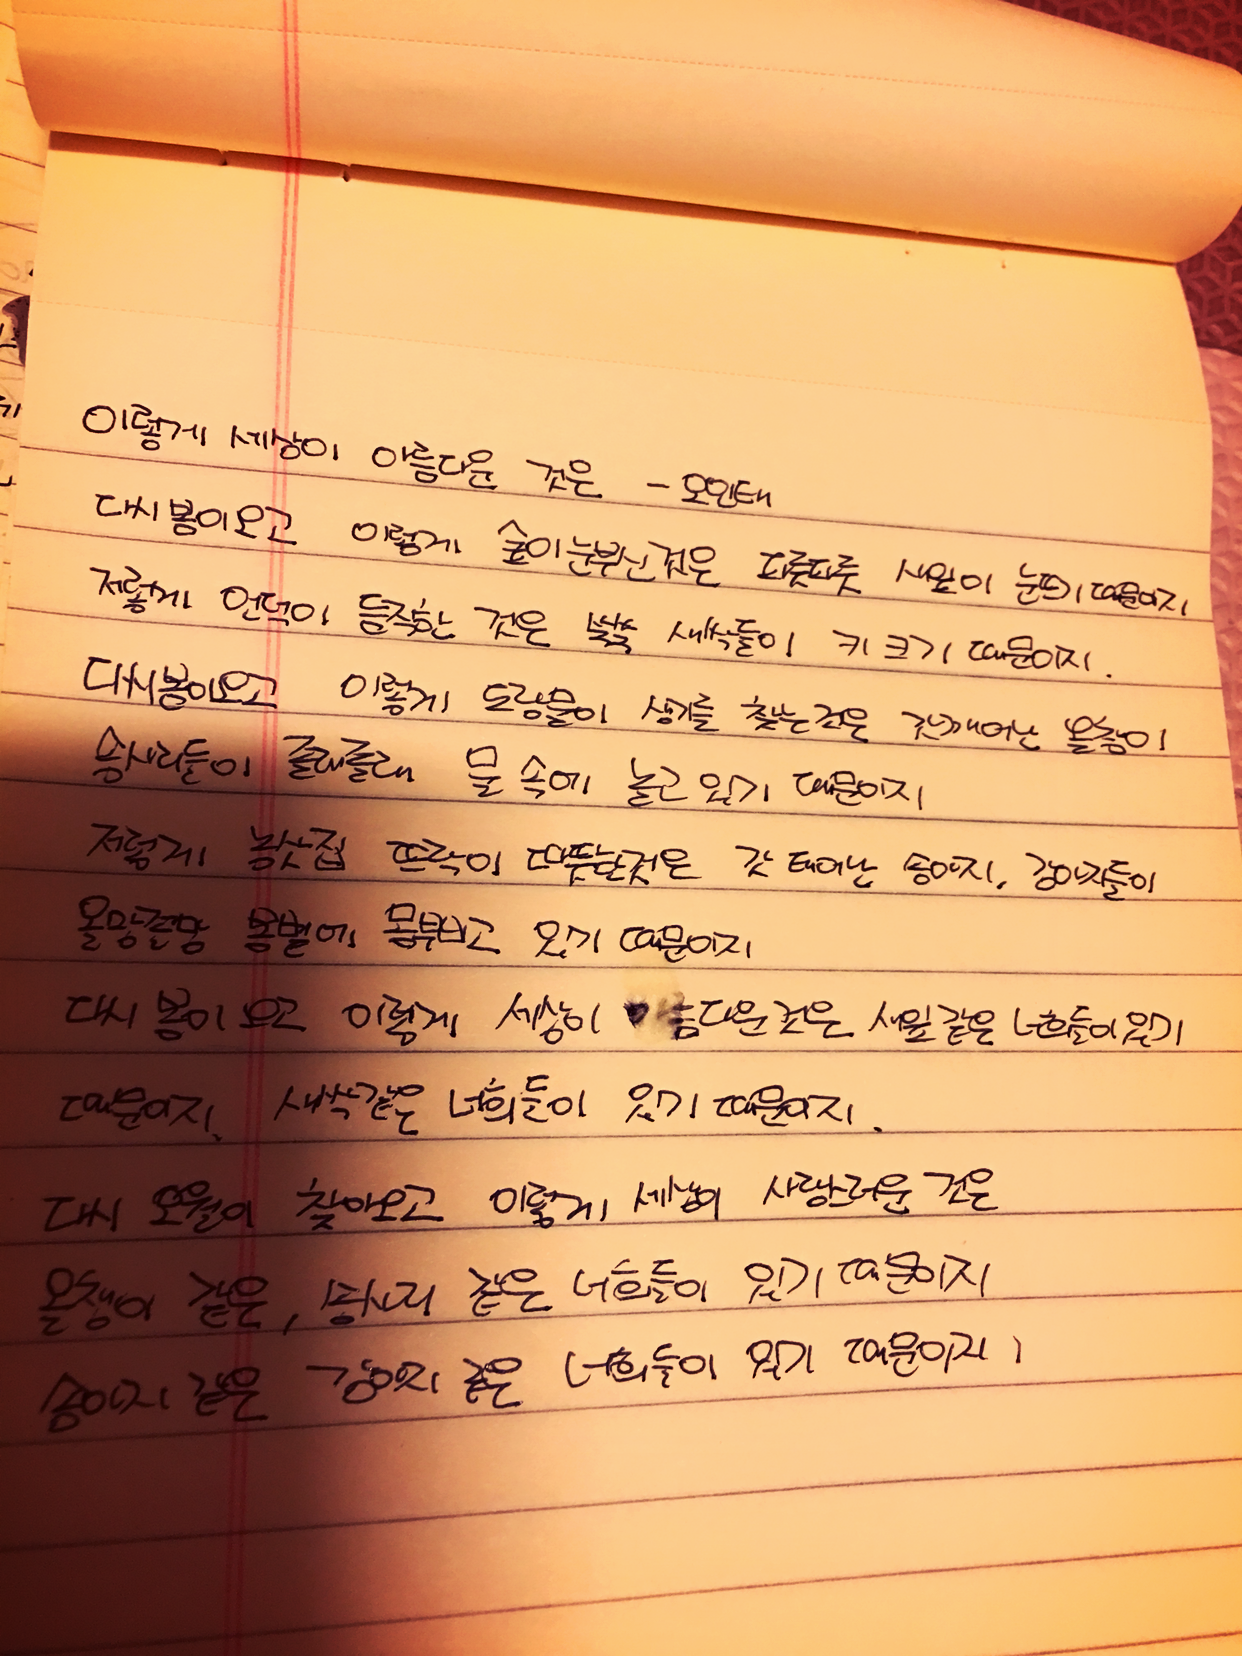 이렇게 세상이 아름다운 것은 - 오인태
다시 봄이 오고 이렇게 숲이 눈부신 것은 파릇파릇 새잎이 눈뜨기 때문이지
저렇게 언덕이 듬직한 것은 쑥쑥 새싹들이 키 크기 때문이지.
다시 봄이 오고 이렇게 도랑물이 생기를 찾는 것은 갓 깨어난 올챙이
송사리들이 졸래졸래 물 속에 놀고 있기 때문이지
저렇게 농삿집 뜨락이 따뜻한 것은 갓 태어난 송아지, 강아지들이
올망졸망 봄볕에 몸부비고 있기 때문이지
다시 봄이 오고 이렇게 세상이 름다운 것은 새잎 같은 너희들이 있기
때문이지, 새싹 같은 너희들이 있기 때문이지.
다시 오월이 찾아오고 이렇게 세상이 사랑스러운 것은
올챙이 같은, 송사리 같은 너희들이 있기 때문이지
송아지 같은 강아지 같은 너희들이 있기 때문이지